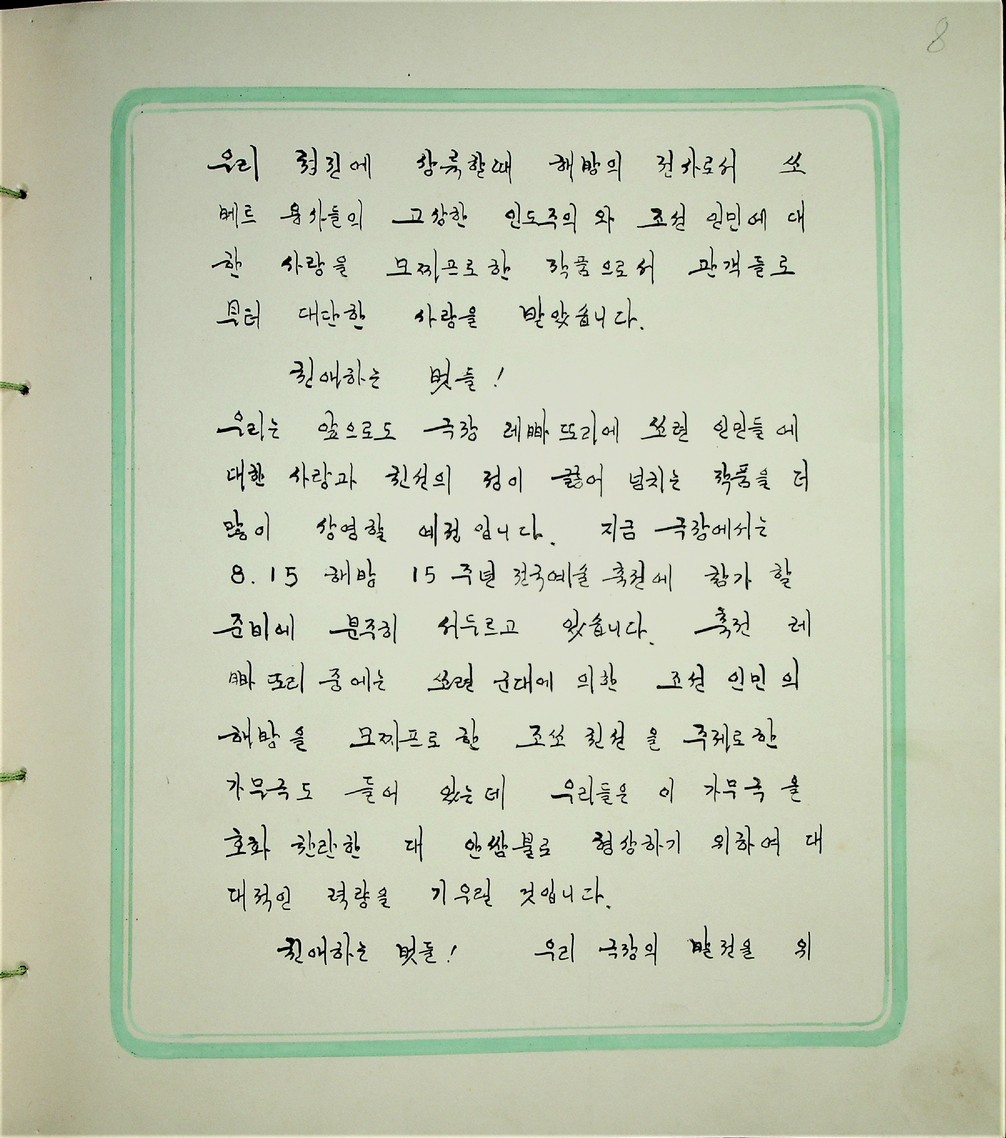 8
우리 청진에 상륙할때 해방의 전사로서 쏘
베트 용사들의 고상한 인도주의 와 조선 인민에 대
한 사랑을 모찌프로 한 작품으로서 관객들로
부터 대단한 사랑을 받았습니다.
친애하는 벗들!
우리는 앞으로도 극장 레빠또리에 쏘련 인민들에
대한 사랑과 친선의 정이 끓어 넘치는 작품을 더
많이 상영할 예정입니다. 지금 극장에서는
8.15 해방 15 주년 전국예술 축전에 참가 할
준비에 분주히 서두르고 있습니다. 축전 레
빠또리 중에는 쏘련 군대에 의한 조선 인민의
해방을 모찌프로 한 조쏘 친선을 주제로한
가무극도 들어 있는데 우리들은 이 가무극을
호화 찬란한 대 안쌈블로 형상하기 위하여 대
대적인 력량을 기우릴 것입니다.
친애하는 벗들! 우리 극장의 발전을 위